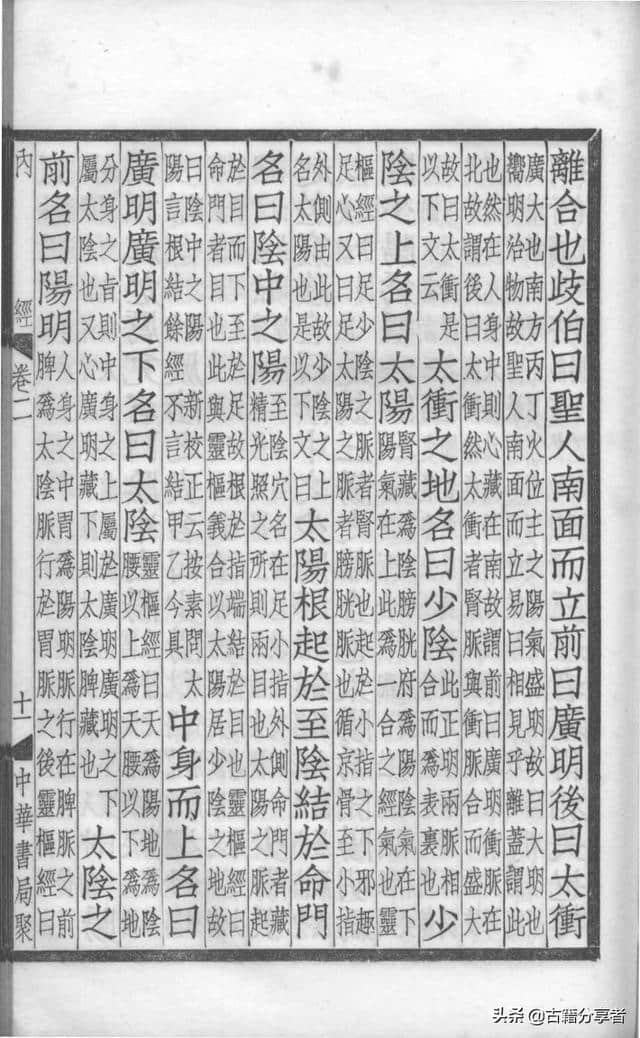 離合也歧伯曰聖人南面而立前曰廣明後曰太衝
廣大也南方丙丁火位主之陽氣盛明故曰大明也
嚮明治物故聖人南面而立易曰相見乎離蓋謂此
也然在人身中則心藏在南故謂前曰廣明衝脈在
北故謂後曰太衝然太衝者腎脈與衝脈合而盛大
故曰太衝是
以下文云
太衝之地名曰少陰
此正明兩脈相
合而爲表裏也
少
陰之上名曰太陽
腎藏爲陰膀胱府爲陽陰氣在下
陽氣在上此爲一合之經氣也靈
樞經曰足少陰之脈者腎脈也起於小指之下邪趣
足心又曰足太陽之脈者膀胱脈也循京骨至小指
外側由此故少陰之上
名太陽也是以下文曰
太陽根起於至陰結於命門
名曰陰中之陽
至陰穴名在足小指外側命門者藏
精光照之所則兩目也太陽之脈起
於目而下至於足故根於指端結於目也靈樞經曰
命門者目也此與靈樞義合以太陽居少陰之地故
曰陰中之陽新校正云按素問太
陽言根結餘經不言結甲乙今具
中身而上名曰
廣明廣明之下名曰太陰
靈樞經曰天爲陽地爲陰
腰以上爲天腰以下爲地
分身之旨則中身之上屬於廣明廣明之下
屬太陰也又心廣明藏下則太陰脾藏也
太陰之
前名曰陽明
人身之中胃爲陽明脈行在脾脈之前
脾爲太陰脈行於胃脈之後靈樞經曰
內經 卷二 十一 中華書局聚
头条 @古籍分享者